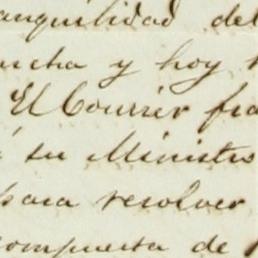 tranquilidad del
mucha y hoy
El Courrier fra
a su Ministro
para resolver
compuesta de